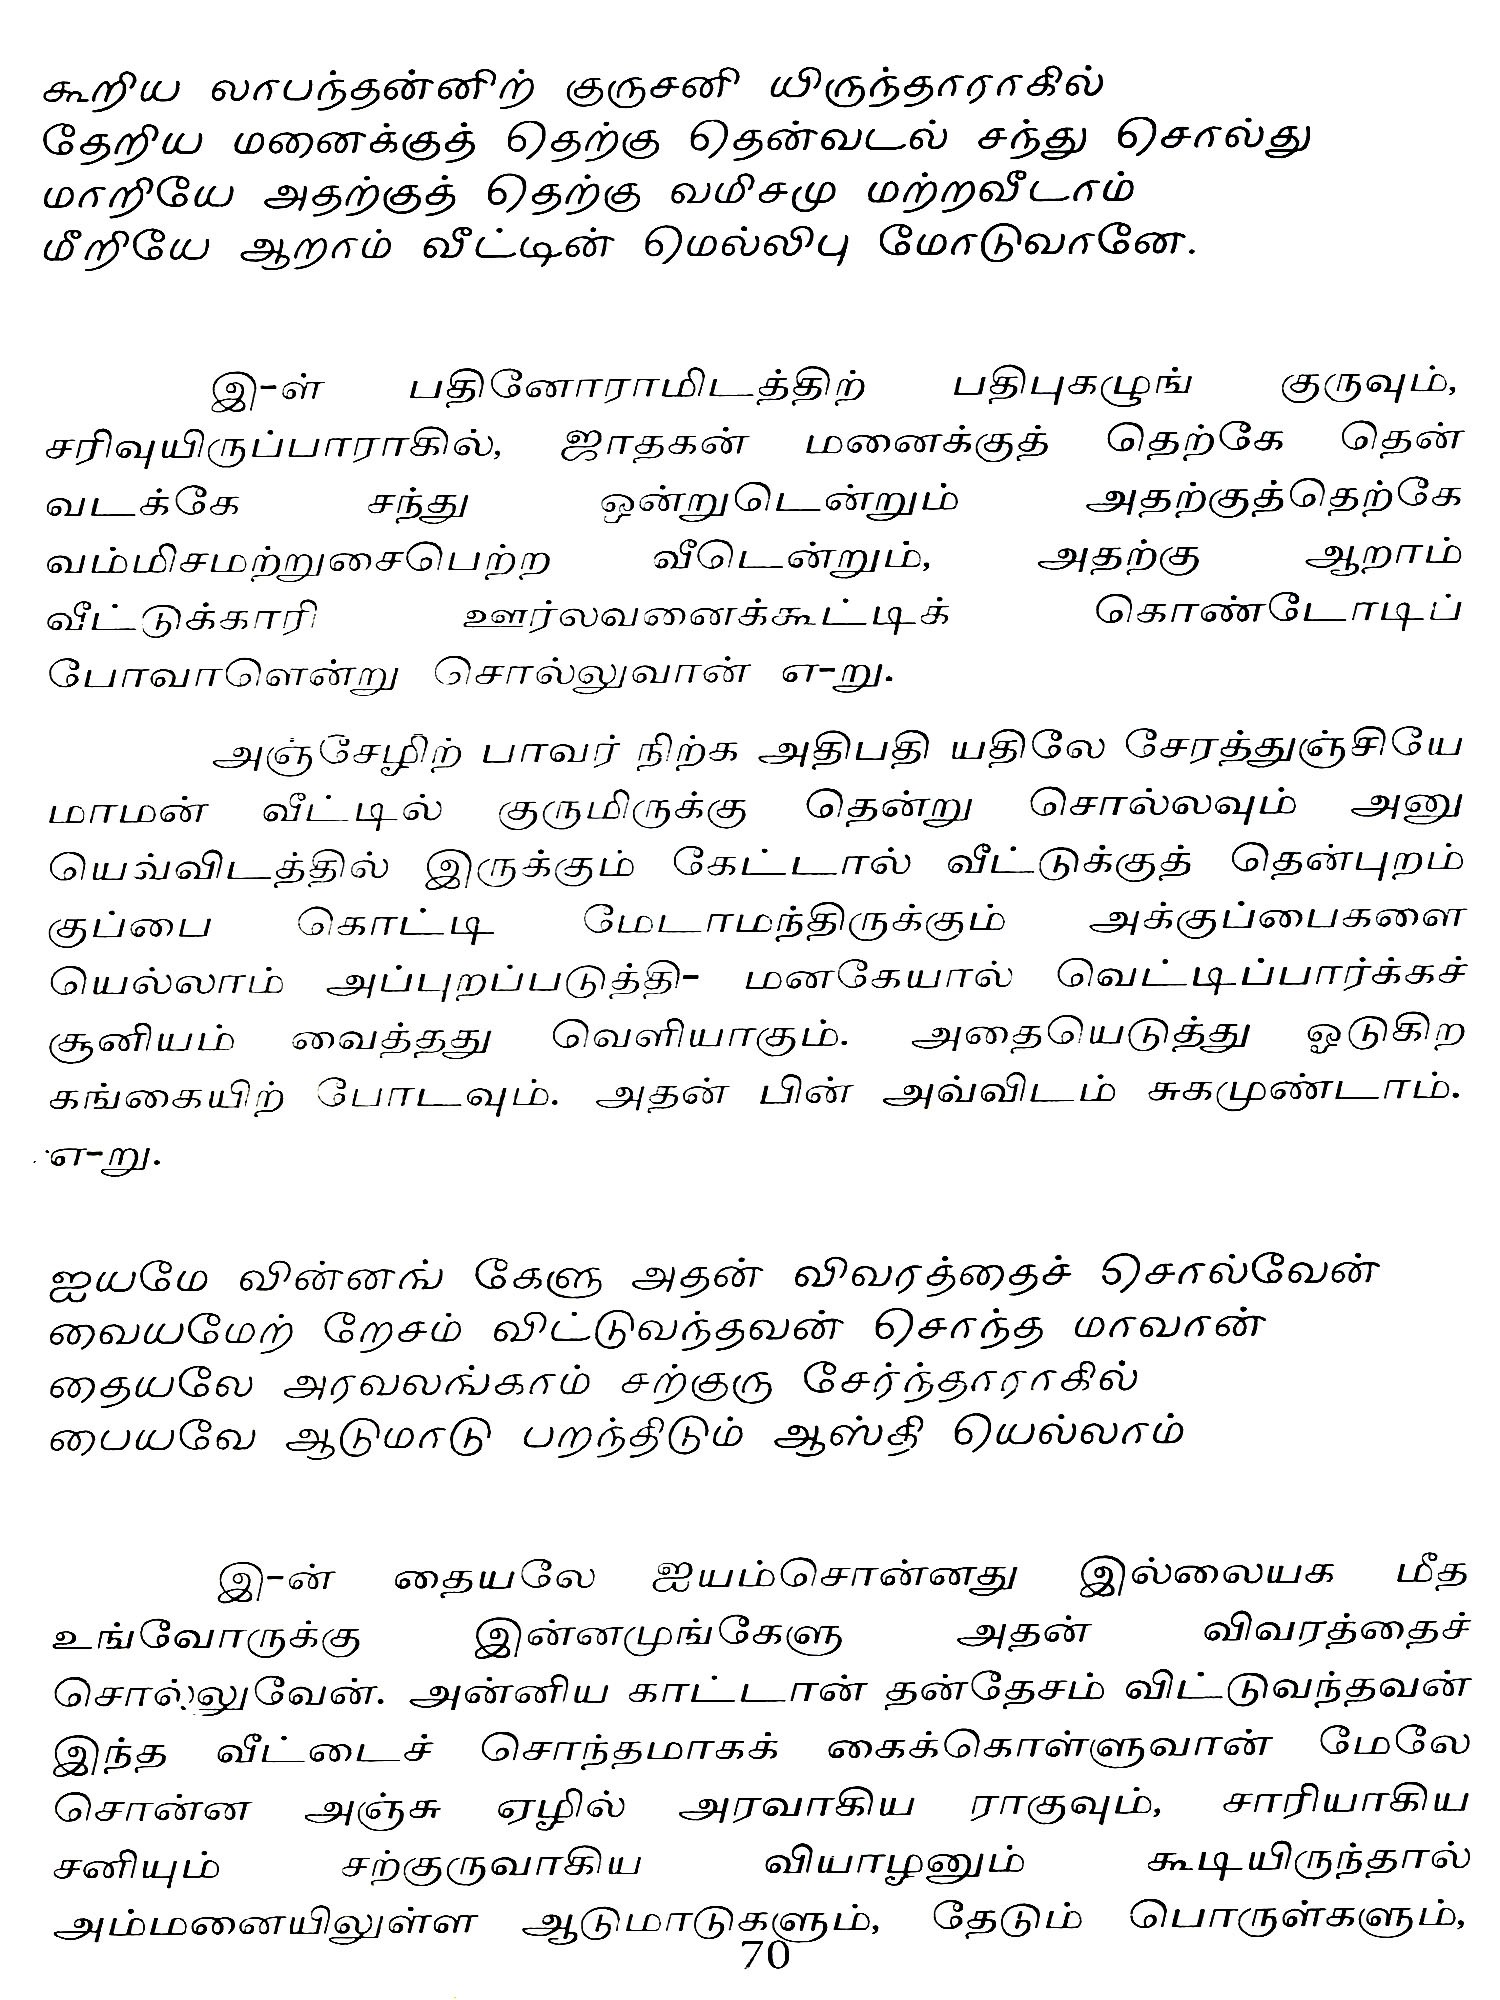 கூறிய லாபந்தன்னிற் குருசனி யிருந்தாராகில்
தேறிய மனைக்குத் தெற்கு தென்வடல் சந்து சொல்து
மாறியே அதற்குத் தெற்கு வமிசமு மற்றவீடாம்
மீறியே ஆறாம் வீட்டின் மெல்லிபு மோடுவானே.
இ-ள் பதினோராமிடத்திற் பதிபுகழுங் குருவும்,
சரிவுயிருப்பாராகில், ஜாதகன் மனைக்குத் தெற்கே தென்
வடக்கே சந்து ஒன்றுடென்றும் அதற்குத்தெற்கே
வம்மிசமற்றுசைபெற்ற வீடென்றும், அதற்கு ஆறாம்
வீட்டுக்காரி ஊர்லவனைக்கூட்டிக் கொண்டோடிப்
போவாளென்று சொல்லுவான் எ-று.
அஞ்சேழிற் பாவர் நிற்க அதிபதி யதிலே சேரத்துஞ்சியே
மாமன் வீட்டில் குருமிருக்கு தென்று சொல்லவும் அனு
யெவ்விடத்தில் இருக்கும் கேட்டால் வீட்டுக்குத் தென்புறம்
குப்பை கொட்டி மேடாமந்திருக்கும் அக்குப்பைகளை
யெல்லாம் அப்புறப்படுத்தி- மனகேயால் வெட்டிப்பார்க்கச்
சூனியம் வைத்தது வெளியாகும். அதையெடுத்து ஓடுகிற
கங்கையிற் போடவும். அதன் பின் அவ்விடம் சுகமுண்டாம்.
எ-று.
ஐயமே வின்னங் கேளு அதன் விவரத்தைச் சொல்வேன்
வையமேற் றேசம் விட்டுவந்தவன் சொந்த மாவான்
தையலே அரவலங்காம் சற்குரு சேர்ந்தாராகில்
பையவே ஆடுமாடு பறந்திடும் ஆஸ்தி யெல்லாம்
இ-ன் தையலே ஐயம்சொன்னது இல்லையக மீத
உங்வோருக்கு இன்னமுங்கேளு அதன் விவரத்தைச்
சொல்லுவேன். அன்னிய காட்டான் தன்தேசம் விட்டுவந்தவன்
இந்த வீட்டைச் சொந்தமாகக் கைக்கொள்ளுவான் மேலே
சொன்ன அஞ்சு ஏழில் அரவாகிய ராகுவும், சாரியாகிய
சனியும் சற்குருவாகிய வியாழனும் கூடியிருந்தால்
அம்மனையிலுள்ள ஆடுமாடுகளும், தேடும் பொருள்களும்,
70